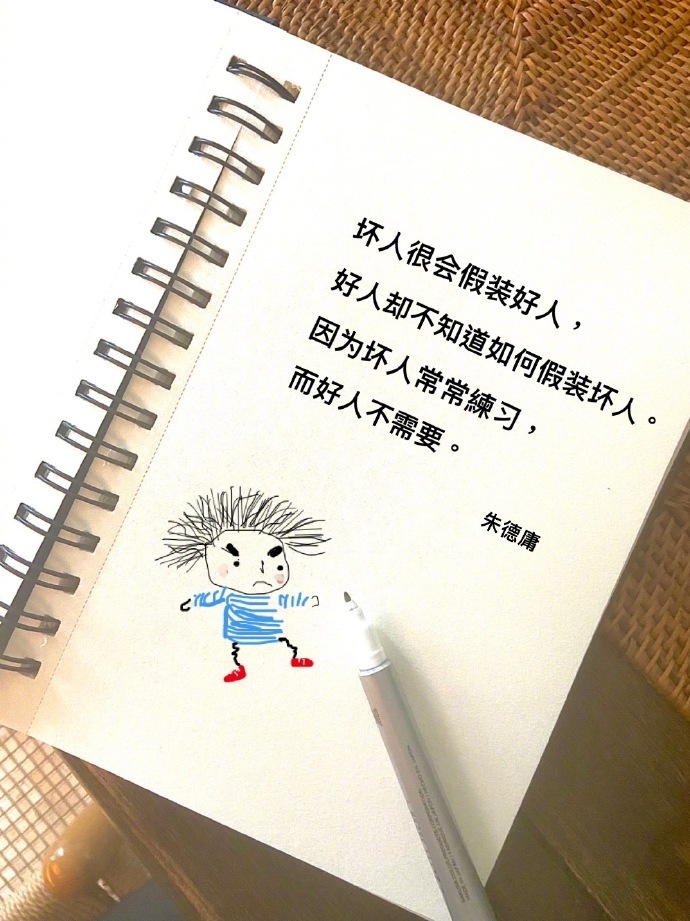 坏人很会假装好人，
好人却不知道如何假装坏人。
因为坏人常常練习，
而好人不需要。
朱德庸